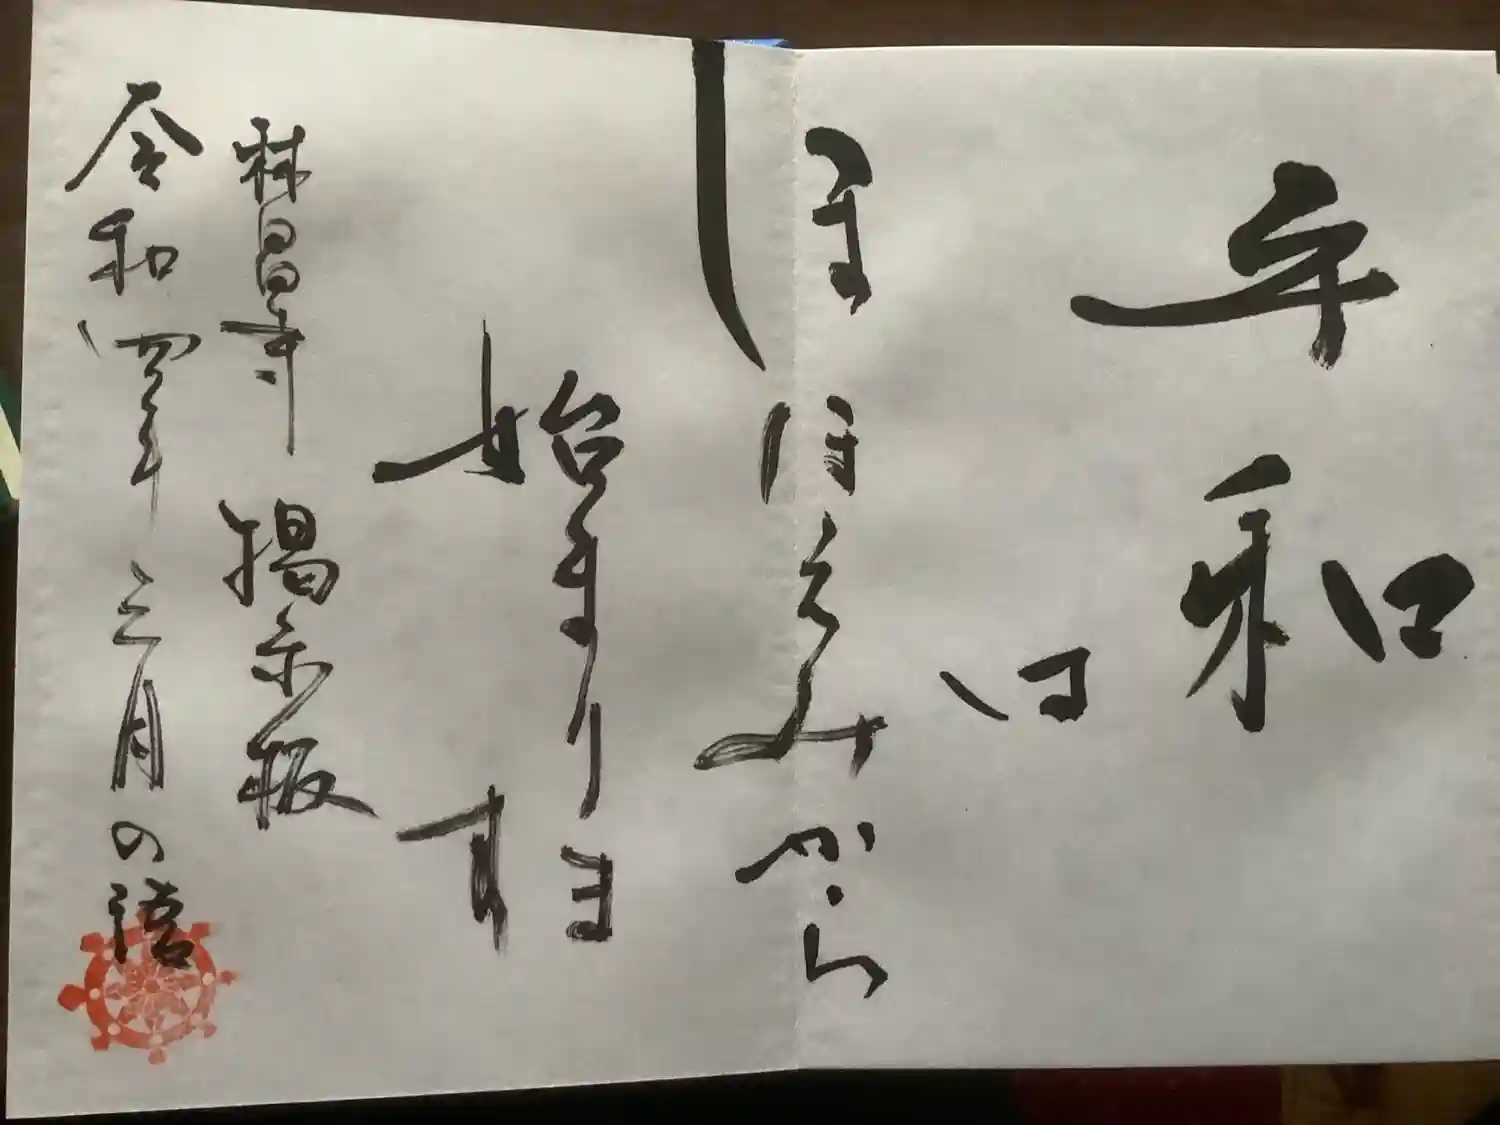 平和
は
ほほえみから
始まります
林昌寺 掲示板
令和四年三月の語